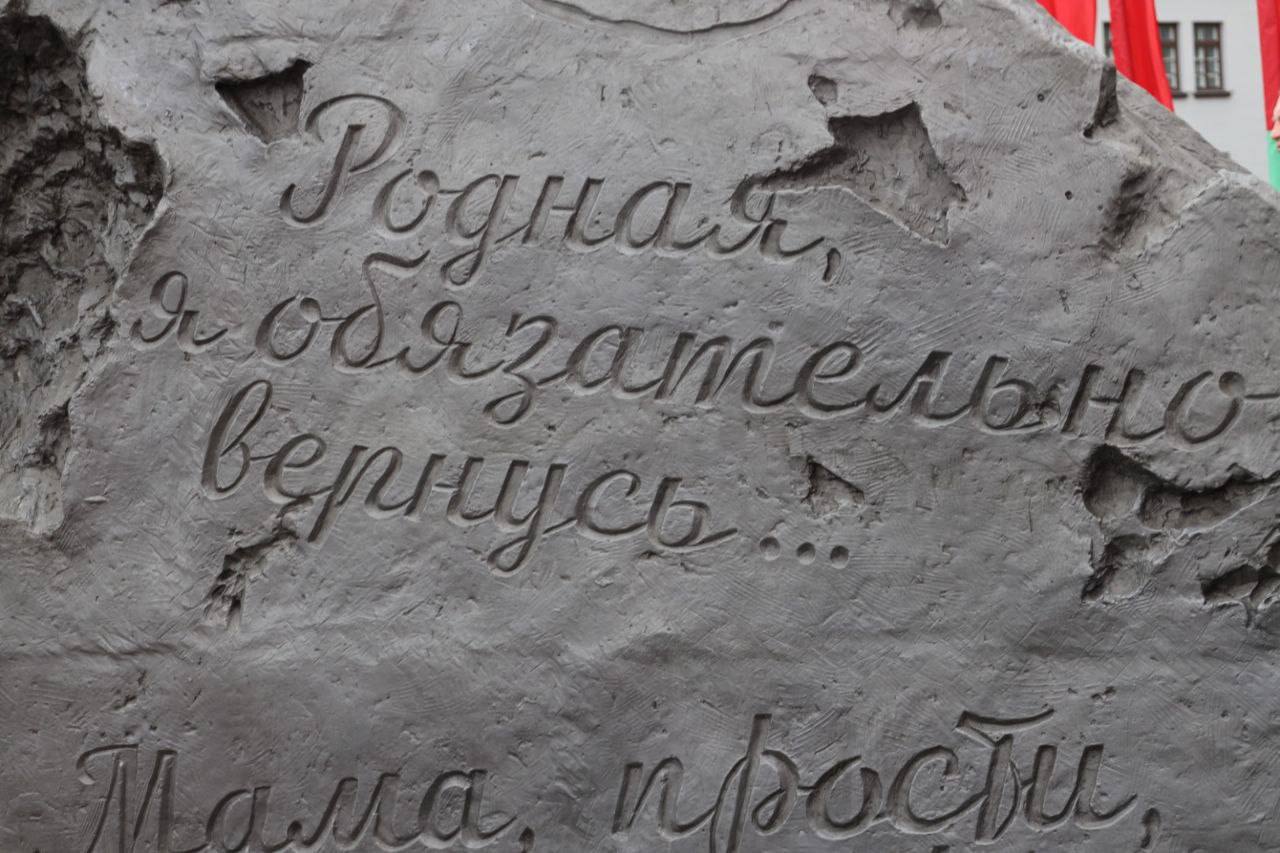 Родная,
я обязательно
вернусь...
Мама, прости,